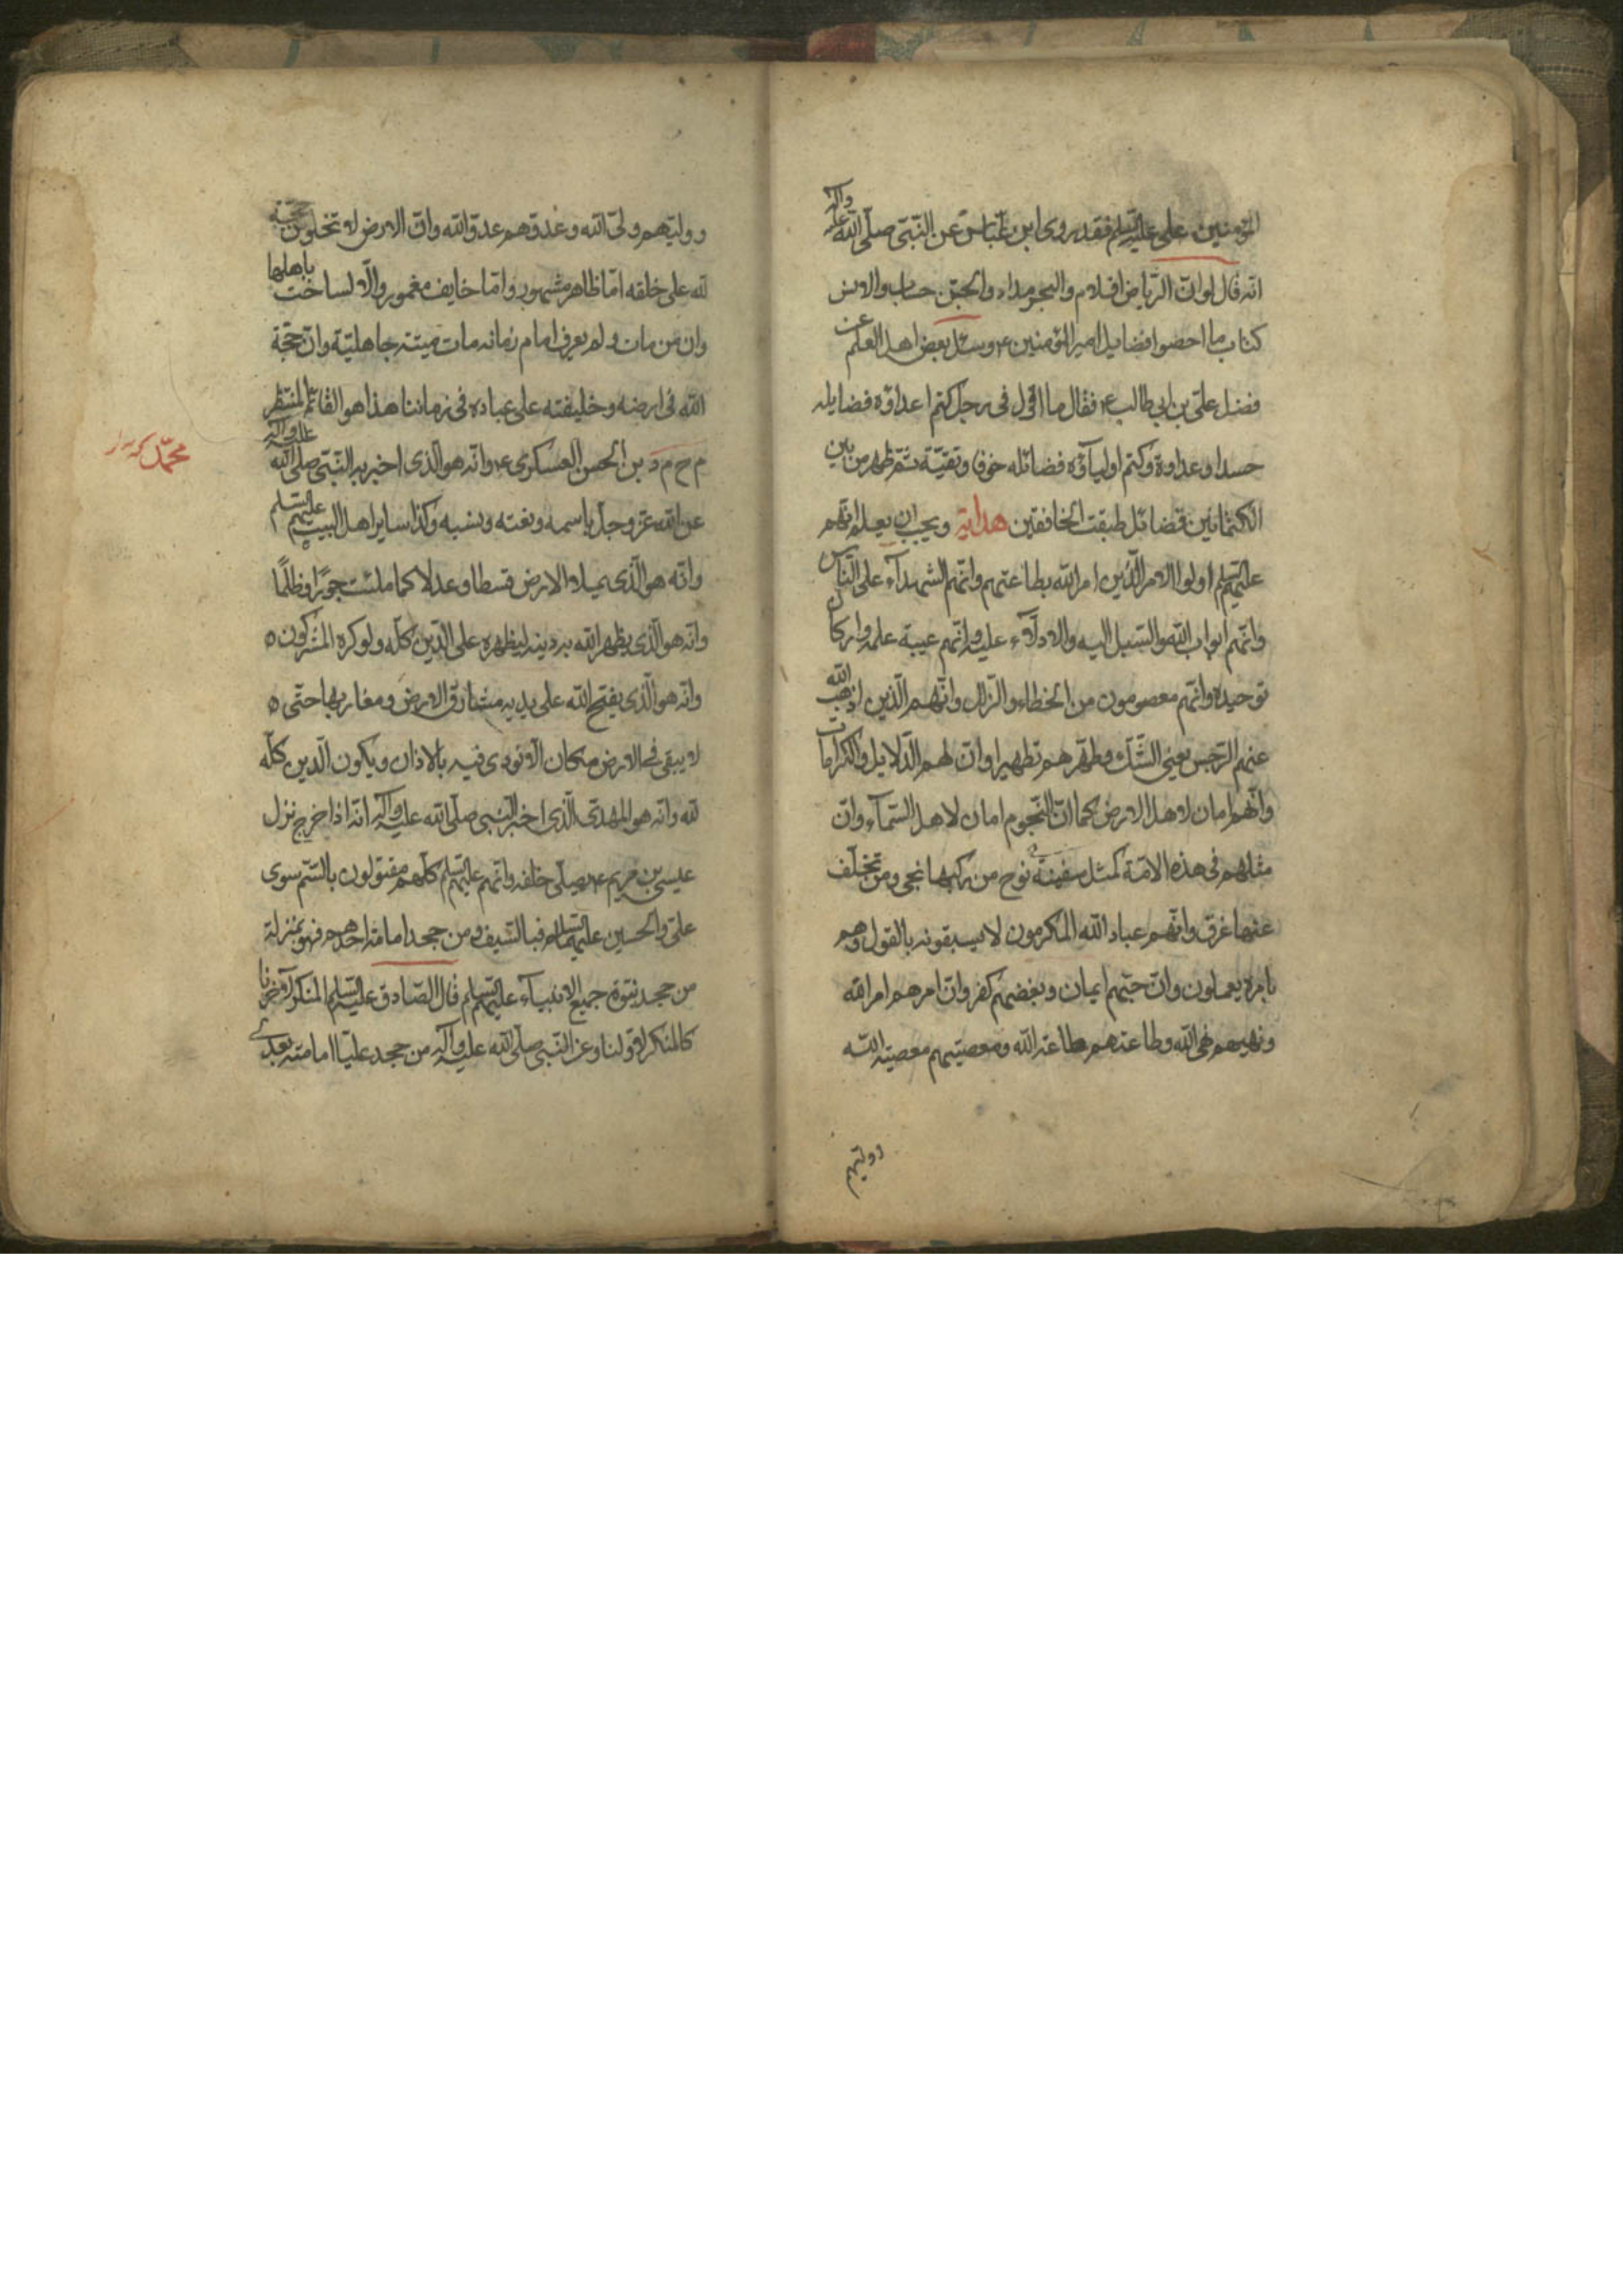 المؤمنين على عليه السلم فقد روى ابن عباس عن النبى صلى الله عليه واله
انه قال لو ان الرياض اقلام والبحر مداد والجن حساب والانس
كتاب ما احصوا فضايل امير المؤمنين ع وسئل بعض اهل العلم عن
فضل على بن ابي طالب ع فقال ما اقول فى رجل كتم اعداؤه فضايله
حسدا وعداوة وكتم اولياؤه فضائله خوفا وتقية ثم ظهر من بين
الكتمانين فضائل طبقت الخافقين هداية ويجب ان يعلم انهم
عليهم السلم اولوا الامر الذين امر الله بطاعتهم وانهم الشهداء على الناس
وانهم ابواب الله والسبيل اليه والادلاء عليه وانهم عيبة علمه واركان
توحيده وانهم معصومون من الخطاء والزلل وانهم الذين اذهب الله
عنهم الرجس يعنى الشك وطهرهم تطهيرا وان لهم الدلايل والكرامات
وانهم امان لاهل الارض كما ان النجوم امان لاهل السماء وان
مثلهم فى هذه الامة كمثل سفينة نوح من ركبها نجى ومن تخلف
عنها غرق وانهم عباد الله المكرمون لا يسبقونه بالقول وهم
بامره يعملون وان حبهم ايمان وبغضهم كفر وان امرهم امر الله
ونهيهم نهى الله وطاعتهم طاعة الله ومعصيتهم معصية الله
ووليهم
ووليهم ولى الله وعدوهم عدو الله وان الارض لا تخلو من حجة
لله على خلقه اما ظاهر مشهور واما خايف مغمور والا لساخت باهلها
وان من مات ولم يعرف امام زمانه مات ميتة جاهلية وان حجة
الله فى ارضه وخليفته على عباده فى زماننا هذا هو القائم المنتظر
م ح م د بن الحسن العسكرى ع وانه هو الذى اخبر به النبى صلى الله عليه واله
محمد
عن الله عز وجل باسمه ونعته ونسبه وكذا ساير اهل البيت عليهم السلم
وانه هو الذى يملاء الارض قسطا وعدلا كما ملئت جورا وظلما
وانه هو الذى يظهر الله به دينه ليظهره على الدين كله ولو كره المشركون ه
وانه هو الذى يفتح الله على يديه مشارق الارض ومغاربها حتى ه
لا يبقى فى الارض مكان الا نودى فيه بالاذان ويكون الدين كله
لله وانه هو المهدى الذى اخبر النبى صلى الله عليه واله انه اذا خرج نزل
عيسى بن مريم ع يصلى خلفه وانهم عليهم السلم كلهم مقتولون بالسم سوى
على والحسين عليهما السلام فبالسيف ومن جحد امامة احدهم فهو بمنزلة
من جحد نبوة جميع الانبياء عليهم السلم قال الصادق عليه السلم المنكر لآخرنا
كالمنكر لاولنا وعن النبى صلى الله عليه واله من جحد عليا امامته بعدى